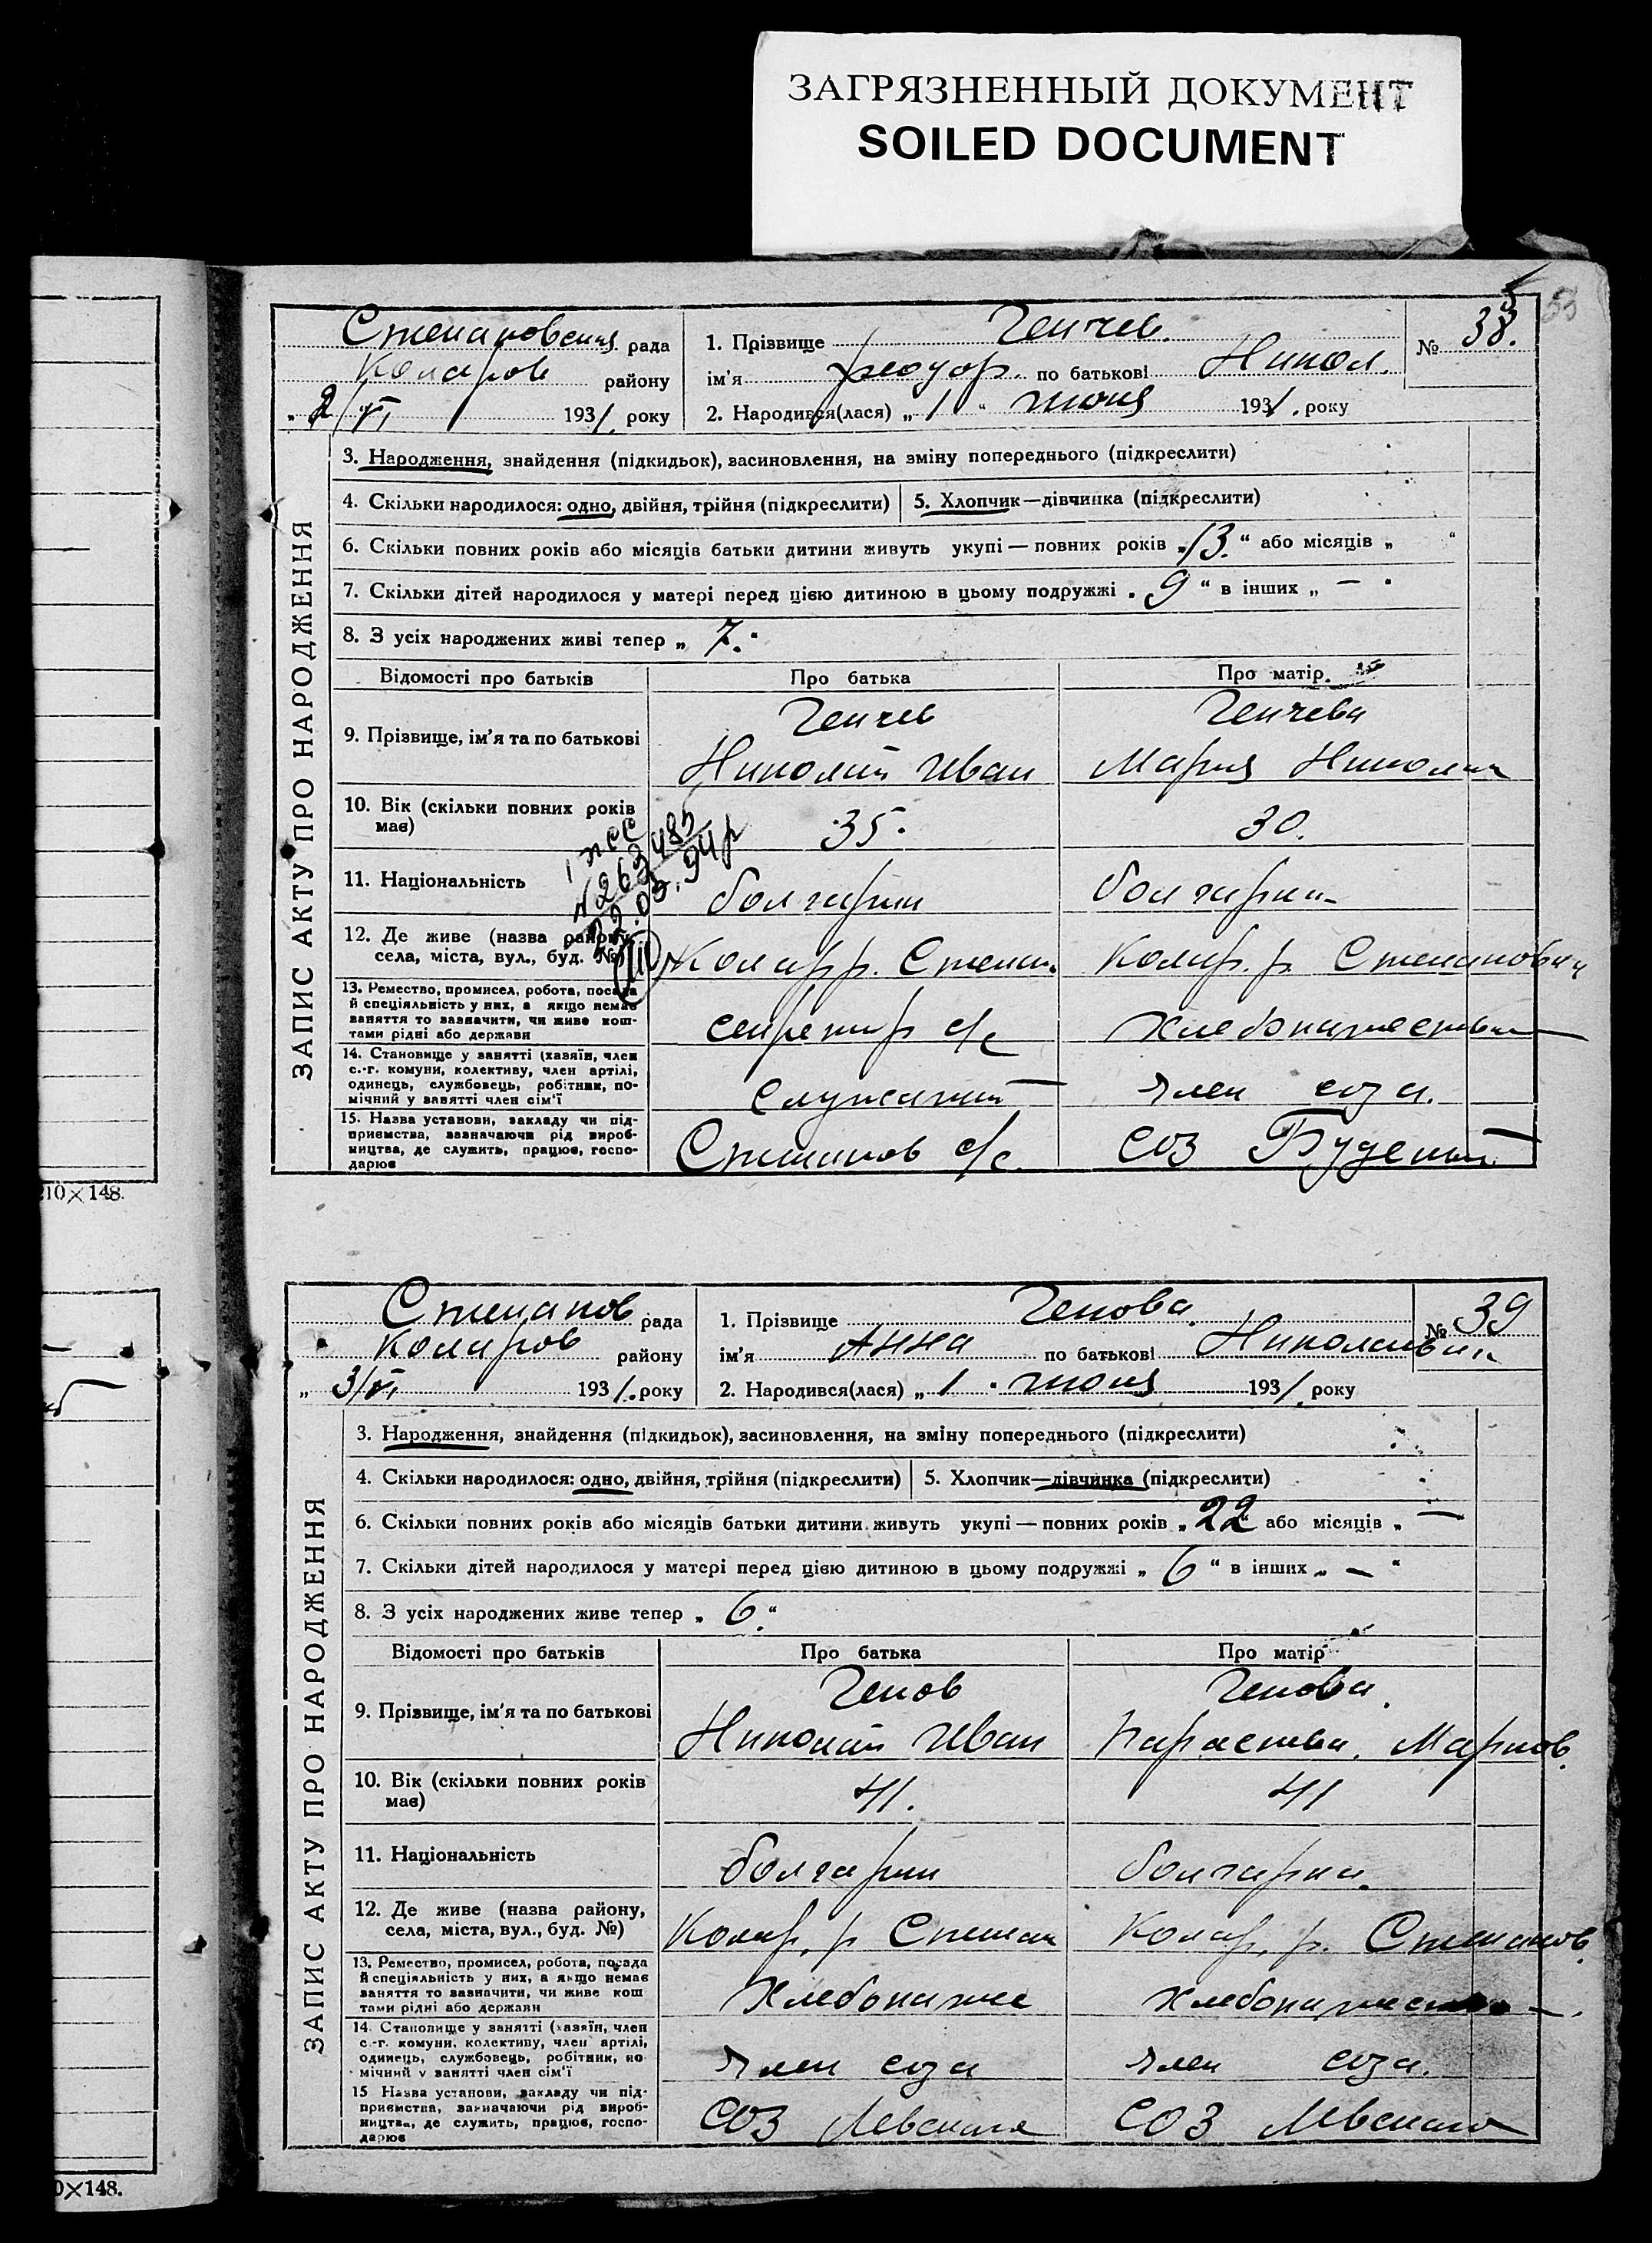 ЗАГРЯЗНЕННЫЙ ДОКУМЕНТ
SOILED DOCUMENT
53
ЗАПИС АКТУ ПРО НАРОДЖЕННЯ
Степановския рада
Коларов району
„2/VI 1931. року
1. Прізвище Генчев.
№ 38.
ім'я Феодор. по батькові Никол.
2. Народився(лася) „1“ июня 1931. року
3. Народження, знайдення (підкидьок), васиновлення, на зміну попереднього (підкреслити)
4. Скільки народилося: одно, двійня, трійня (підкреслити)
5. Хлопчик—дівчинка (підкреслити)
6. Скільки повних років або місяців батьки дитини живуть укупі — повних років „13.“ або місяців „ “
7. Скільки дітей народилося у матері перед цією дитиною в цьому подружжі „9“ в інших „ —
8. З усіх народжених живі тепер „7.“
Відомості про батьків
Про батька
Про матір
9. Прізвище, ім'я та по батькові
Генчев
Николай Иван
Генчева
Мария Николаи
10. Вік (скільки повних років
має)
35.
30.
22.03.94р
11. Національність
болгарин
болгарин
12. Де живе (назва району,
села, міста, вул., буд. №)
Колар р. Степан.
Колар. р. Степанович
13. Ремество, промисел, робота, посада
й спеціяльність у них, а якщо немає
заняття то зазначити, чи живе кош-
тами рідні або держави
секретар с/с
Хлебопашество
14. Становище у занятті (хазяїн, член
с.-г. комуни, колективу, член артілі,
одинець, службовець, робітник, по-
мічний у занятті член сім'ї
Служащий
член соза.
15. Назва установи, закладу чи під-
приємства, зазначаючи рід вироб-
ництва, де служить, працює, госпо-
дарює
Степанов с/с.
СОЗ Буденый
10×148.
ЗАПИС АКТУ ПРО НАРОДЖЕННЯ
Степанов рада
Коларов району
„3/VI 1931. року
1. Прізвище Генова.
№ 39
ім'я Анна по батькові Николаевна
2. Народився(лася) „1. июня 1931. року
3. Народження, знайдення (підкидьок), васиновлення, на зміну попереднього (підкреслити)
4. Скільки народилося: одно, двійня, трійня (підкреслити)
5. Хлопчик—дівчинка (підкреслити)
6. Скільки повних років або місяців батьки дитини живуть укупі — повних років „22“ або місяців „ —“
7. Скільки дітей народилося у матері перед цією дитиною в цьому подружжі „6“ в інших „ — “
8. З усіх народжених живе тепер „6.“
Відомості про батьків
Про батька
Про матір
9. Прізвище, ім'я та по батькові
Генов
Николай Иван
Генова.
Параскева. Марков.
10. Вік (скільки повних років
має)
41.
41
11. Національність
болгарин
болгарка.
12. Де живе (назва району,
села, міста, вул., буд. №)
Колар. р Степан
Колар. р. Степанов.
13. Ремество, промисел, робота, посада
й спеціяльність у них, а якщо немає
заняття то зазначити, чи живе кош
тами рідні або держави
Хлебопаше
Хлебопашество
14. Становище у занятті (хазяїн, член
с.-г. комуни, колективу, член артілі,
одинець, службовець, робітник, по-
мічний у занятті член сім'ї
член соза
член соза.
15 Назва установи, закладу чи під-
приємства, зазначаючи рід вироб-
ництва, де служить, працює, госпо-
дарює
СОЗ Левского
СОЗ Левского
0×148.